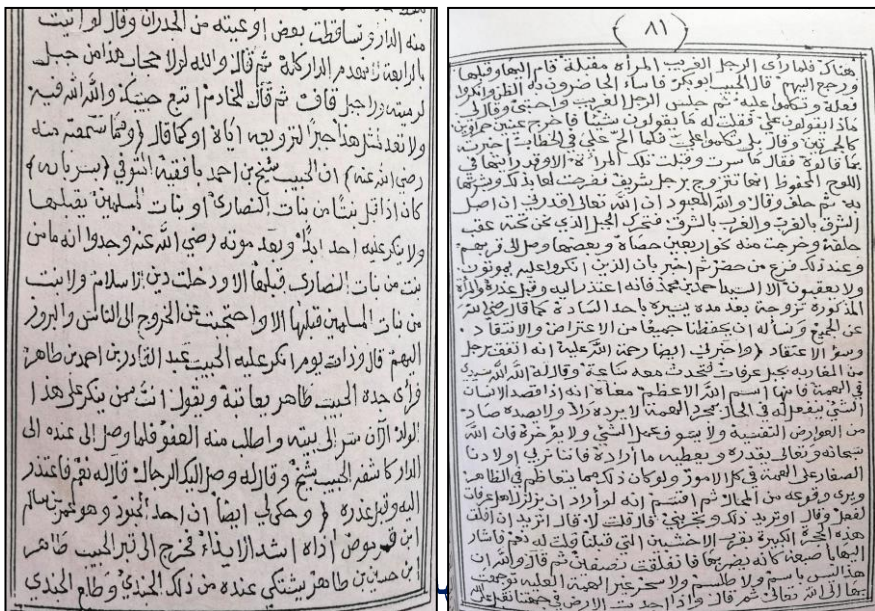 (٨١)
هناك فلما رأى الرجل الغريب المرأة مقبلة قام اليها وقبلها
ورجع اليهم قال الحبيب ابو بكر فاساء الحاضرون به الظن وانكروا
فعله وتكلموا عليه ثم جلس الرجل الغريب واحتبى وقال لي
ماذا يقولون علي فقلت له ما يقولون شيئا فاخرج عينين حمراوين
كالجمرتين وقال بلى تكلموا علي فلما الح علي في الخطاب اخبرته
بما قالوه فقال ما سرت وقبلت تلك المرأة الا وقد رايتها في
اللوح المحفوظ انها تتزوج برجل شريف ففرحت لها بذلك وبشرتها
به ثم حلف وقال والله المعبود ان الله تعالى اقدرني ان اصل
الشرق بالغرب والغرب بالشرق فتحرك الجبل الذي نحن تحته عقب
حلفه وخرجت منه نحو اربعين حصاة وبعضها وصل الى قربهم
وعند ذلك فزع من حضر ثم اخبر بان الذين انكروا عليه يموتون
ولا يعقبون الا السيد احمد بن محمد فانه اعتذر اليه وقبل عذره والمرأة
المذكورة تزوجت بعد مدة يسيرة باحد السادة كما قال رضي الله
عن الجميع ونساله ان يحفظنا جميعا من الاعتراض والانتقاد
وسوء الاعتقاد ﴿واخبرني ايضا رحمة الله عليه انه اتفق برجل
من المغاربة بجبل عرفات فتحدث معه ساعة وقال له الله الله سيدي
في الهمة فانها اسم الله الاعظم معناه انه اذا قصد الانسان
الشي بفعله في الحال بمجرد الهمة لا يرده راد ولا يصده صاد
من العوارض النفسية ولا يسوف عمل الشي ولا يؤخره فان الله
سبحانه وتعالى بقدره ويعطيه ما اراده فاننا نربي اولادنا
الصغار على الهمة في كل الامور ولو كان ذلك مما يتعاظم في الظاهر
ويرى وقوعه من المحال ثم اقسم انه لو اراد ان يزلزل
لفعل وقال او تريد ذلك قال قلت لا قال اتريد ان افلق
هذه الحجرة الكبيرة بقرب الاخشبين التي قبلنا قلت له نعم فاشار
اليها باصبعه كانه يضربها فانفلقت نصفين ثم قال والله ان
هذا ليس باسم ولا طلسم ولا سحر غير الهمة العلية توجهت
بها الى الله تعالى ثم قال واذا احدنا الارض
منه الدار وتساقطت بعض اوعيته من الجدران وقال لو اتيت
بالرابعة لانهدم الدار كله ثم قال والله لولا حجاب هذا من جبل
لرميته وراجبل قاف ثم قال للخادم اتبع حبيبك والله الله فيه
ولا تعد لمثل هذا خبرا لترويعه اياه او كما قال ﴿ومما سمعته منه
رضي الله عنه﴾ ان الحبيب شيخ بن احمد بافقيه المتوفي ﴿بسربايه﴾
كان اذا قبل بنتا من بنات النصارى او بنات المسلمين يقبلها
ولا ينكر عليه احد ابدا وبعد موته رضي الله عنه وجدوا انه ما من
بنت من بنات النصارى قبلها الا ودخلت دين الاسلام ولا بنت
من بنات المسلمين قبلها الا واحتجبت عن الخروج الى الناس والبروز
اليهم قال وذات يوم انكر عليه الحبيب عبد القادر بن احمد بن طاهر
فرأى جده الحبيب طاهر يعاتبه ويقول انت من ينكر على هذا
الولد الآن سر الى بيته واطلب منه العفو فلما وصل الى عنده الى
الدار كاشفه الحبيب شيخ وقال له وصل اليك الرجال قال له نعم فاعتذر
اليه وقبل عذره ﴿وحكى لي ايضا ان احد الجنود وهو عمر بن سالم
ابن قرموص اذاه اشد الايذاء فخرج الى قبر الحبيب طاهر
ابن حسين بن طاهر يشتكي عنده من ذلك الجندي وطلع الجندي